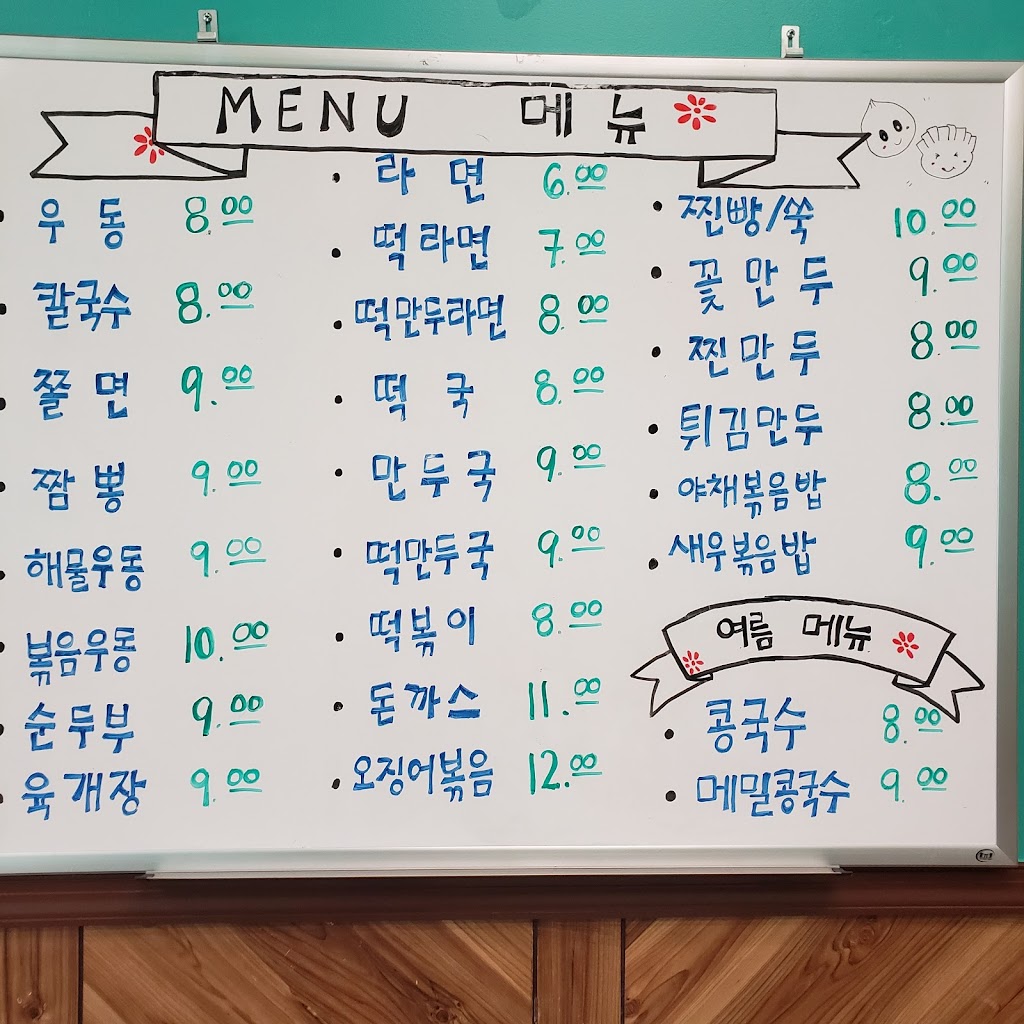 MENU 메뉴
우동 8.00
칼국수 8.00
쫄면 9.00
짬뽕 9.00
해물우동 9.00
볶음우동 10.00
순두부 9.00
육개장 9.00
라면 6.00
떡라면 7.00
떡만두라면 8.00
떡국 8.00
만두국 9.00
떡만두국 9.00
떡볶이 8.00
돈까스 11.00
오징어볶음 12.00
찐빵/쑥 10.00
꽃만두 9.00
찐만두 8.00
튀김만두 8.00
야채볶음밥 8.00
새우볶음밥 9.00
여름 메뉴
콩국수 8.00
메밀콩국수 9.00